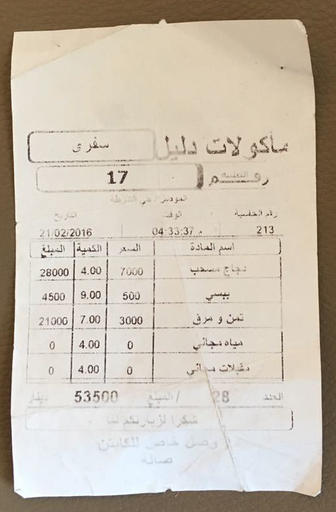 مأكولات دليل
سفري
17
الموصل / حي الشرطة
رقم القائمة الوقت التاريخ
213 04:33:37 م 21/02/2016
اسم المادة السعر الكمية المبلغ
دجاج مسحب 7000 4.00 28000
بيبسي 500 9.00 4500
تمن و مرق 3000 7.00 21000
مياه مجاني 0 4.00 0
مقبلات مجاني 0 4.00 0
العدد 28 / المبلغ 53500 دينار
شكرا لزيارتكم لنا
وصل خاص للكابتن
صاله